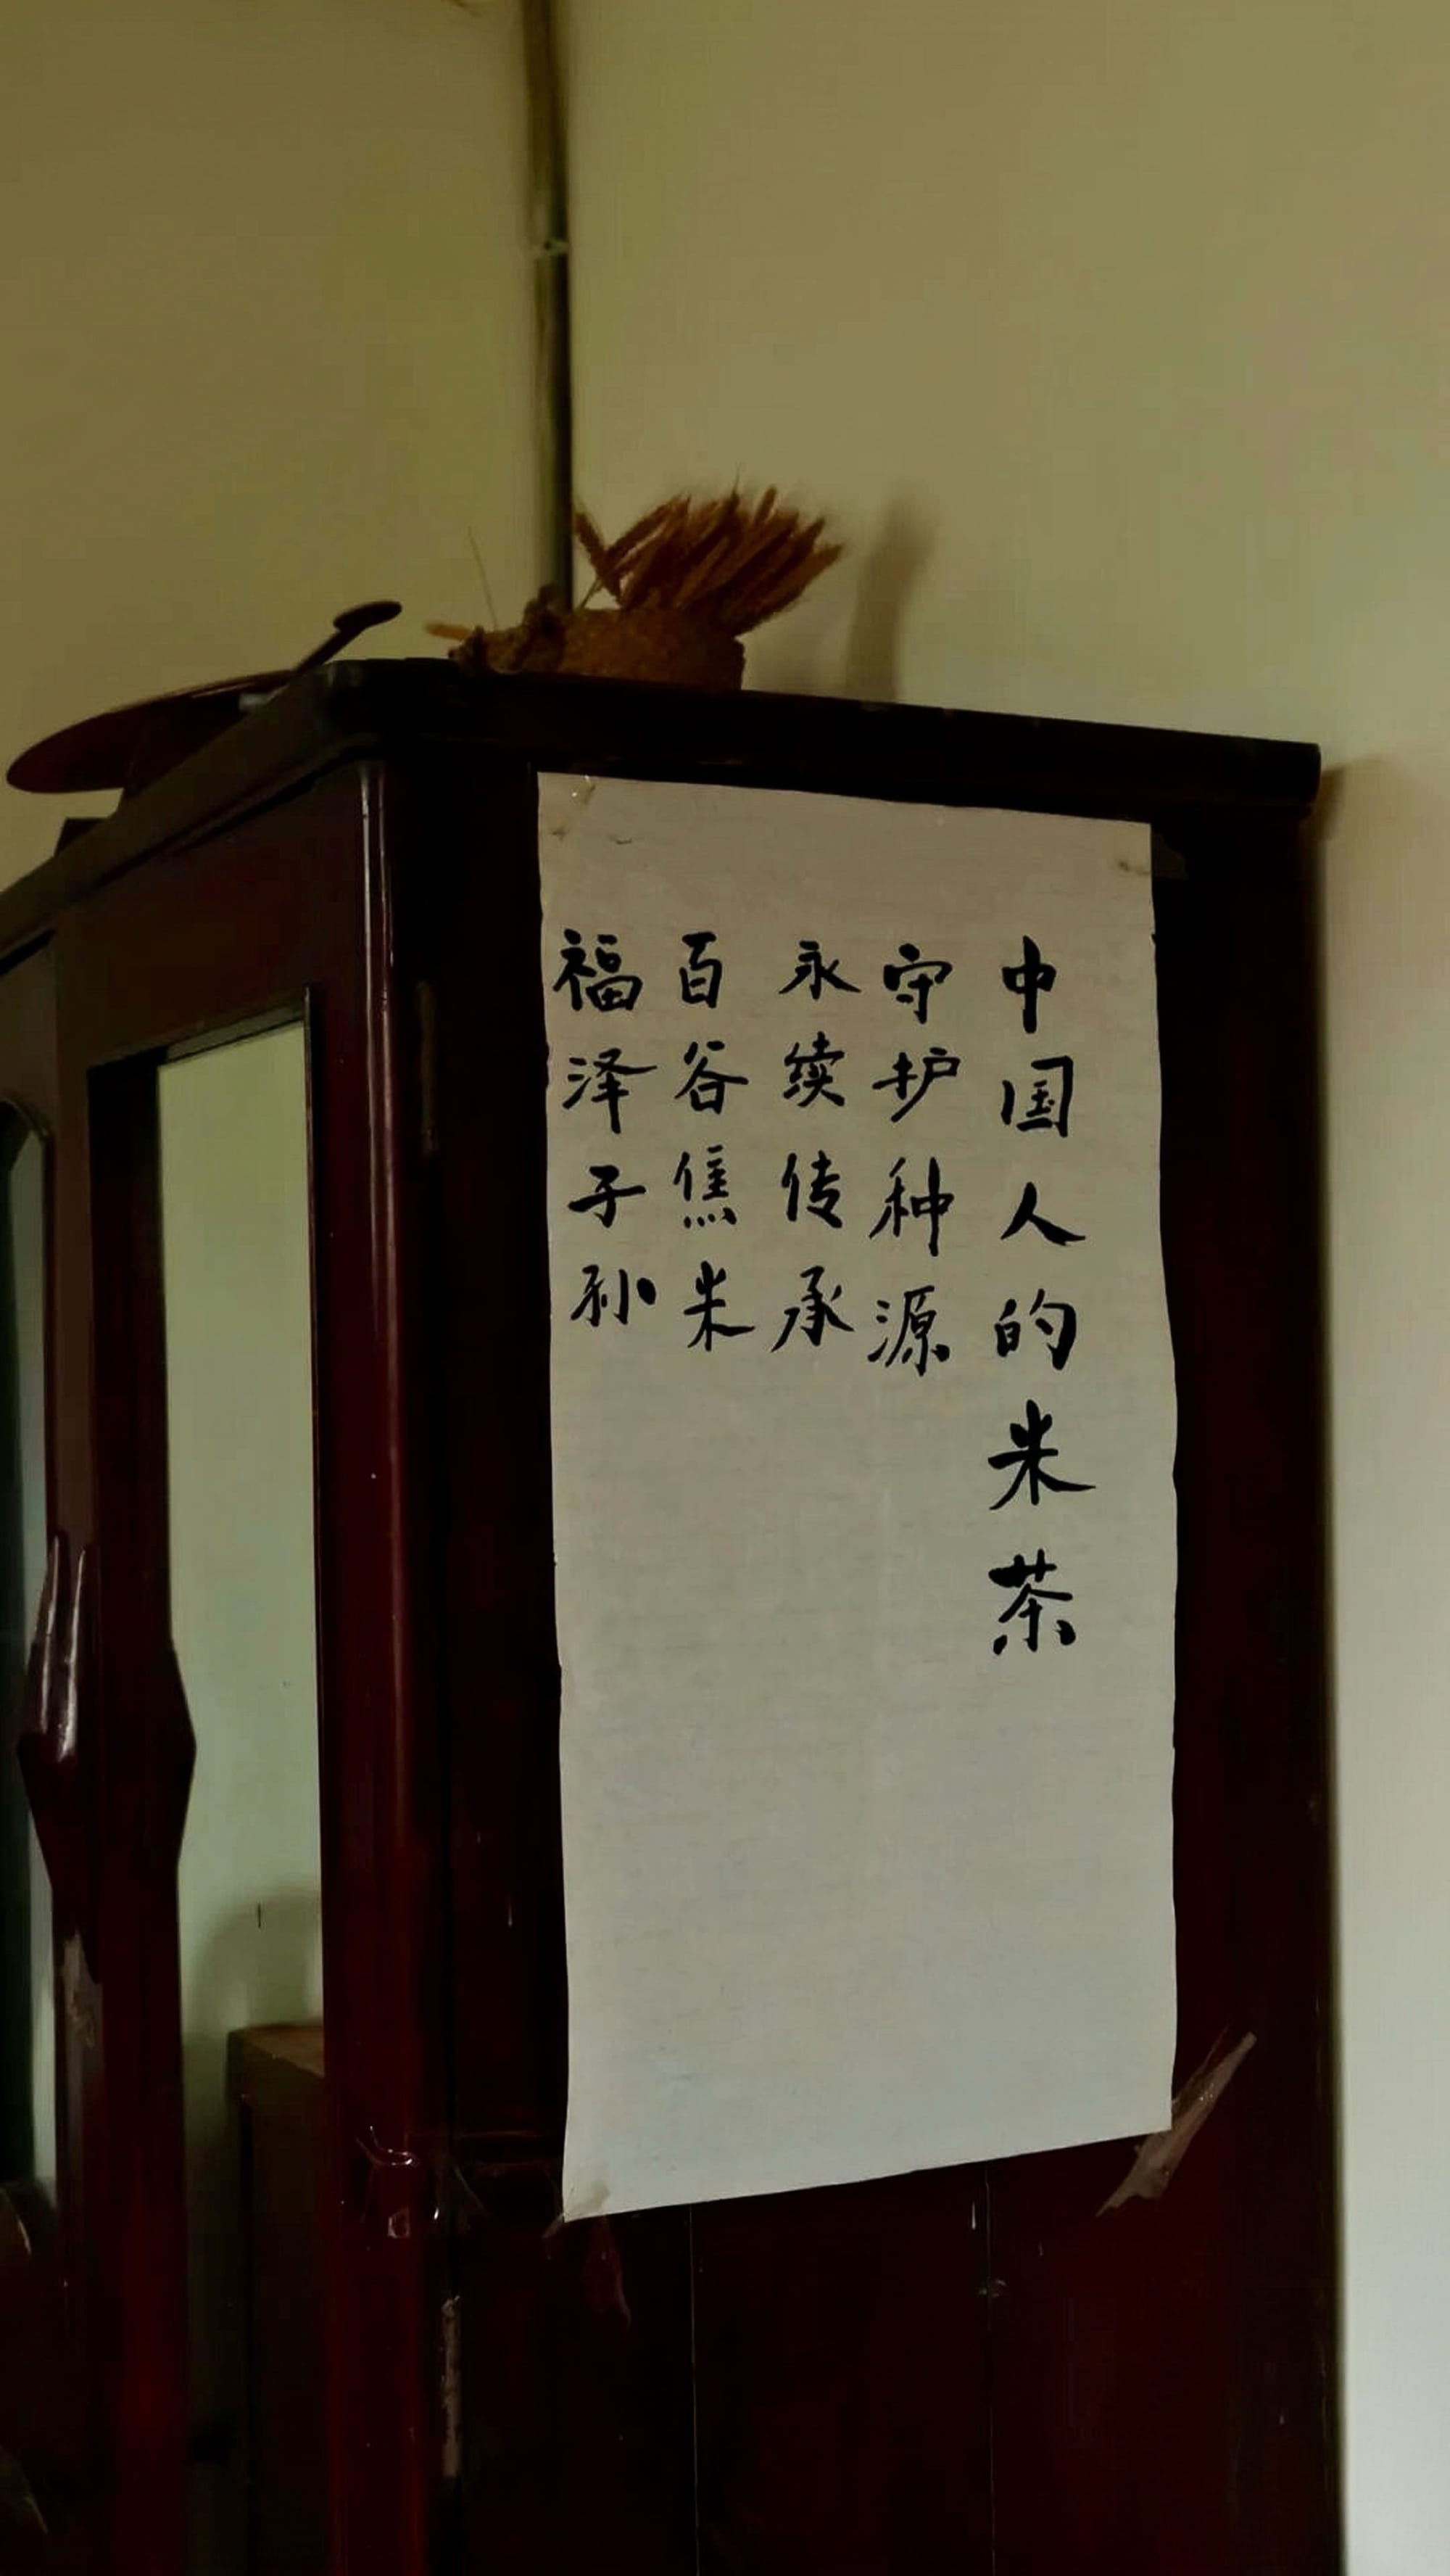 中国人的米茶
守护种源
永续传承
百谷焦米
福泽子孙